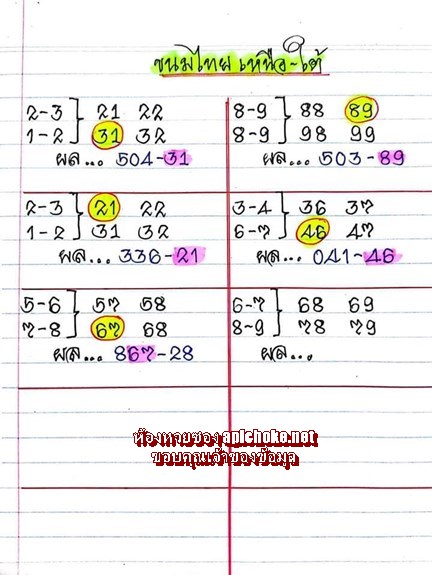 ขนมไทย เหนือ-ใต้
2-3 21 22
1-2 31 32
ผล... 504-31
8-9 88 89
8-9 98 99
ผล... 503-89
2-3 21 22
1-2 31 32
ผล... 336-21
3-4 36 37
6-7 46 47
ผล... 041-46
5-6 57 58
7-8 67 68
ผล... 867-28
6-7 68 69
8-9 78 79
ผล...
ห้องหวยซอง apichoke.net
ขอบคุณเจ้าของข้อมูล